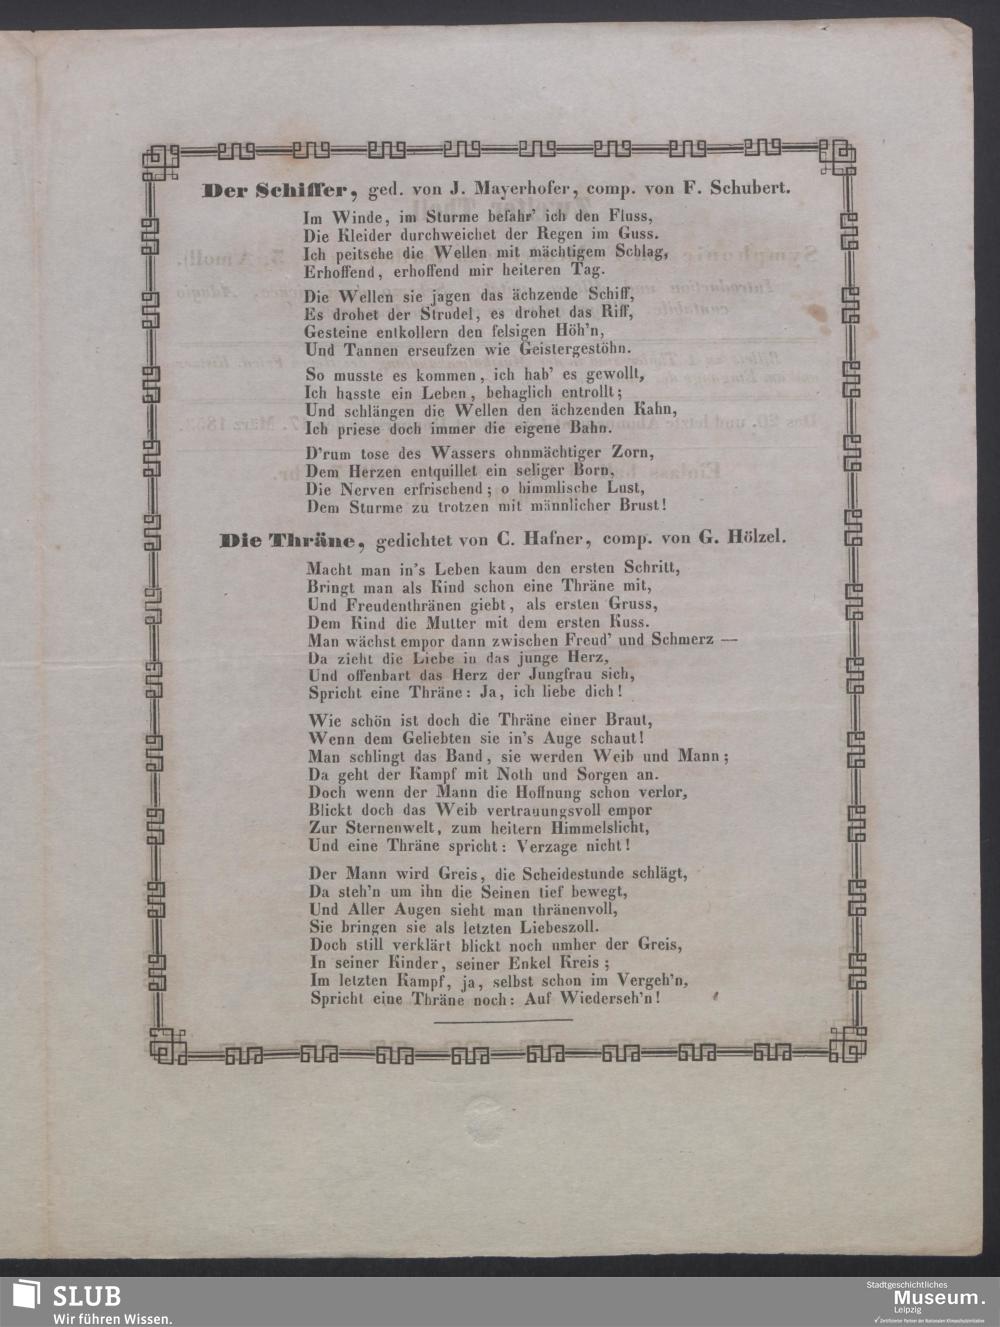 Der Schiffer, ged. von J. Mayerhofer, comp. von F. Schubert.
Im Winde, im Sturme befahr' ich den Fluss,
Die Kleider durchweichet der Regen im Guss.
Ich peitsche die Wellen mit mächtigem Schlag,
Erhoffend, erhoffend mir heiteren Tag.
Die Wellen sie jagen das ächzende Schiff,
Es drohet der Strudel, es drohet das Riff,
Gesteine entkollern den felsigen Höh'n,
Und Tannen erseufzen wie Geistergestöhn.
So musste es kommen, ich hab' es gewollt,
Ich hasste ein Leben, behaglich entrollt;
Und schlängen die Wellen den ächzenden Kahn,
Ich priese doch immer die eigene Bahn.
D'rum tose des Wassers ohnmächtiger Zorn,
Dem Herzen entquillet ein seliger Born,
Die Nerven erfrischend; o himmlische Lust,
Dem Sturme zu trotzen mit männlicher Brust!
Die Thräne, gedichtet von C. Hafner, comp. von G. Hölzel.
Macht man in's Leben kaum den ersten Schritt,
Bringt man als Kind schon eine Thräne mit,
Und Freudenthränen giebt, als ersten Gruss,
Dem Kind die Mutter mit dem ersten Kuss.
Man wächst empor dann zwischen Freud' und Schmerz —
Da zieht die Liebe in das junge Herz,
Und offenbart das Herz der Jungfrau sich,
Spricht eine Thräne: Ja, ich liebe dich!
Wie schön ist doch die Thräne einer Braut,
Wenn dem Geliebten sie in's Auge schaut!
Man schlingt das Band, sie werden Weib und Mann;
Da geht der Kampf mit Noth und Sorgen an.
Doch wenn der Mann die Hoffnung schon verlor,
Blickt doch das Weib vertrauungsvoll empor
Zur Sternenwelt, zum heitern Himmelslicht,
Und eine Thräne spricht: Verzage nicht!
Der Mann wird Greis, die Scheidestunde schlägt,
Da steh'n um ihn die Seinen tief bewegt,
Und Aller Augen sieht man thränenvoll,
Sie bringen sie als letzten Liebeszoll.
Doch still verklärt blickt noch umher der Greis,
In seiner Kinder, seiner Enkel Kreis;
Im letzten Kampf, ja, selbst schon im Vergeh'n,
Spricht eine Thräne noch: Auf Wiederseh'n!
SLUB
Wir führen Wissen.
Stadtgeschichtliches
Museum.
Leipzig
Zertifizierter Partner der Nationalen Klimaschutzinitiative